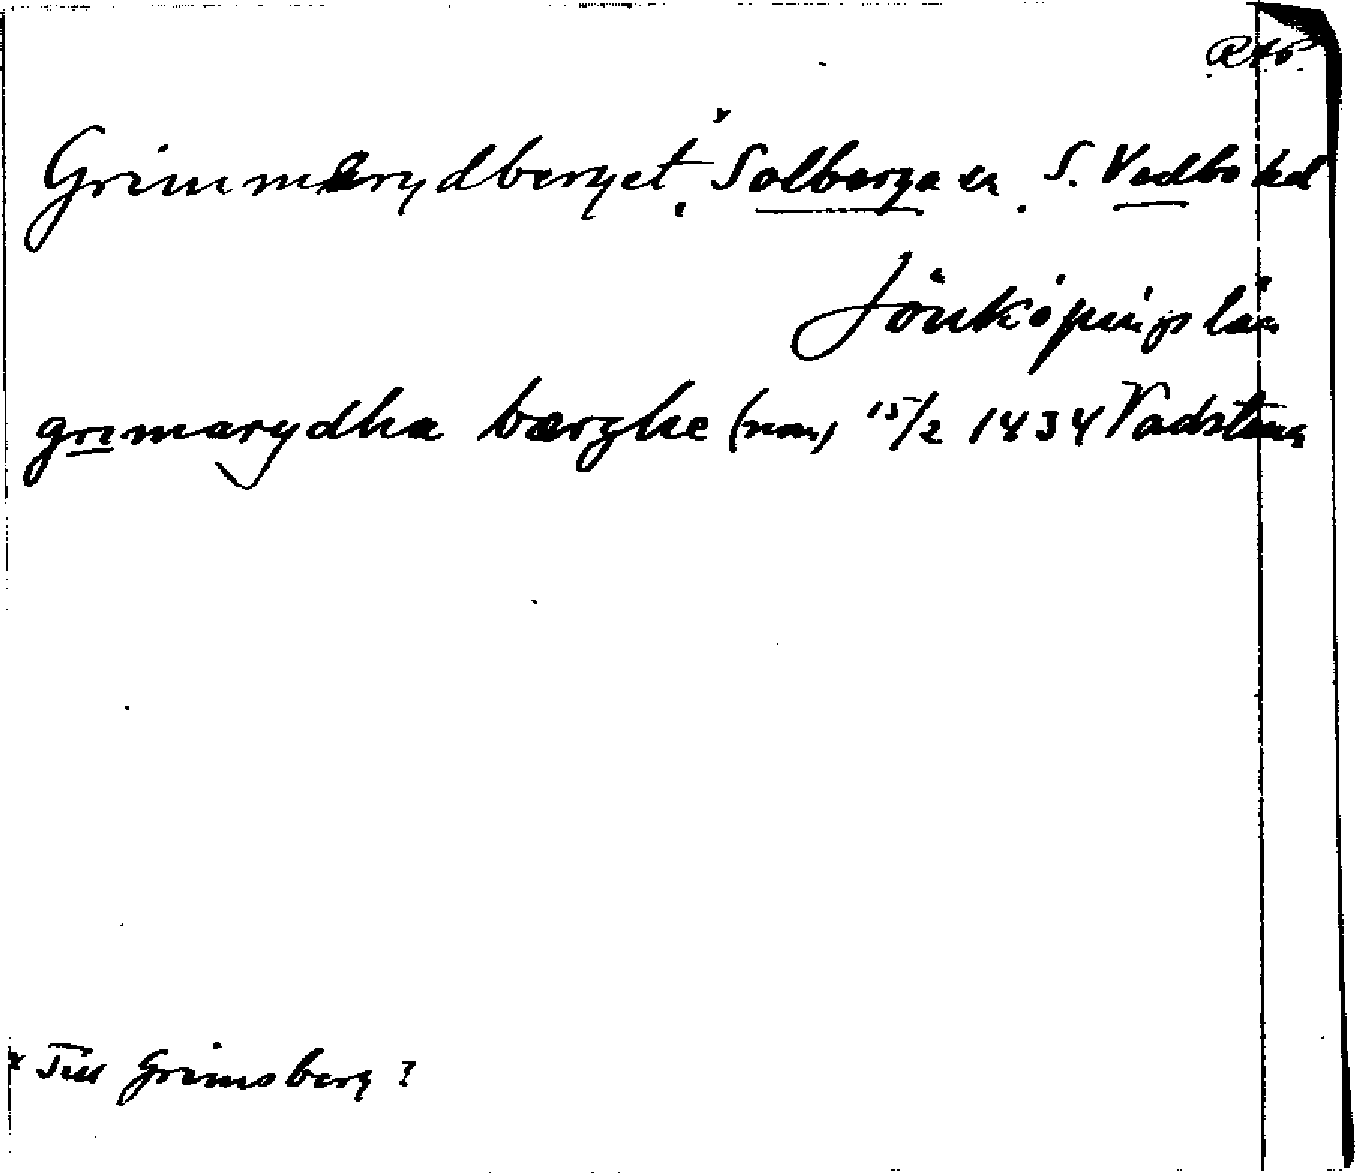 RAP
Grimmarydberget ˣ Solberga sn. S. Vedbo hd
Jönköpings län
grimarydha bærghe (nom) 15/2 1434 Vadstena
x Till Grimsberg?